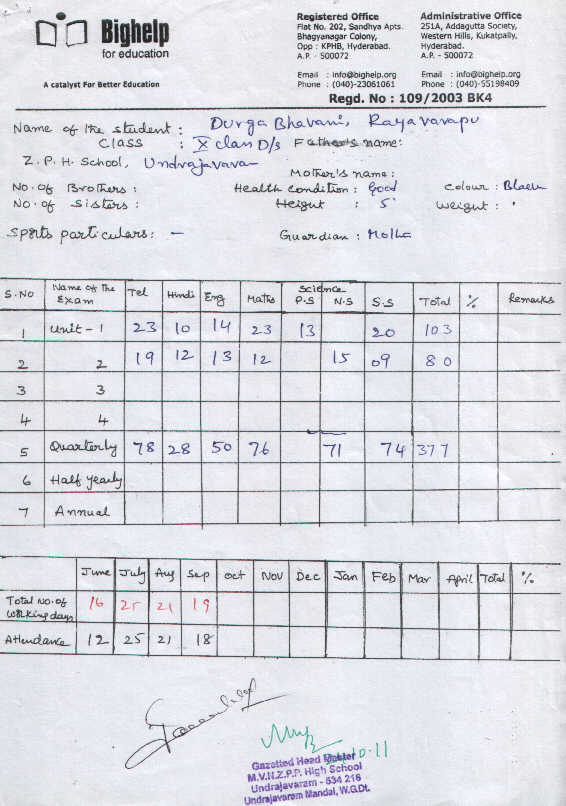 Bighelp
for education
A catalyst For Better Education
Registered Office
Flat No. 202, Sandhya Apts.
Bhagyanagar Colony,
Opp : KPHB, Hyderabad.
A.P. - 500072
Email : info@bighelp.org
Phone : (040)-23061061
Administrative Office
251A, Addagutta Society,
Western Hills, Kukatpally,
Hyderabad.
A.P. - 500072
Email : info@bighelp.org
Phone : (040)-55198409
Regd. No : 109/2003 BK4
Name of the student : Durga Bhavani, Rayavarapu
Class : X class D/s Father's name:
Z.P.H. School, Undrajavaram
Mother's name :
No. of Brothers : Health Condition : Good Colour : Black
No. of Sisters : Height : 5' Weight : '
Sports particulars: - Guardian :
S.No Name of the Exam Tel Hindi Eng Maths Science P.S N.S S.S Total % Remarks
1 Unit - 1 23 10 14 23 13 20 103
2 2 19 12 13 12 15 09 80
3 3
4 4
5 Quarterly 78 28 50 76 71 74 377
6 Half yearly
7 Annual
June July Aug Sep Oct Nov Dec Jan Feb Mar April Total %
Total No. of working days 16 25 21 19
Attendance 12 25 21 18
10-11
Gazetted Head Master
M.V.N.Z.P.P. High School
Undrajavaram - 534 216
Undrajavaram Mandal, W.G.Dt.